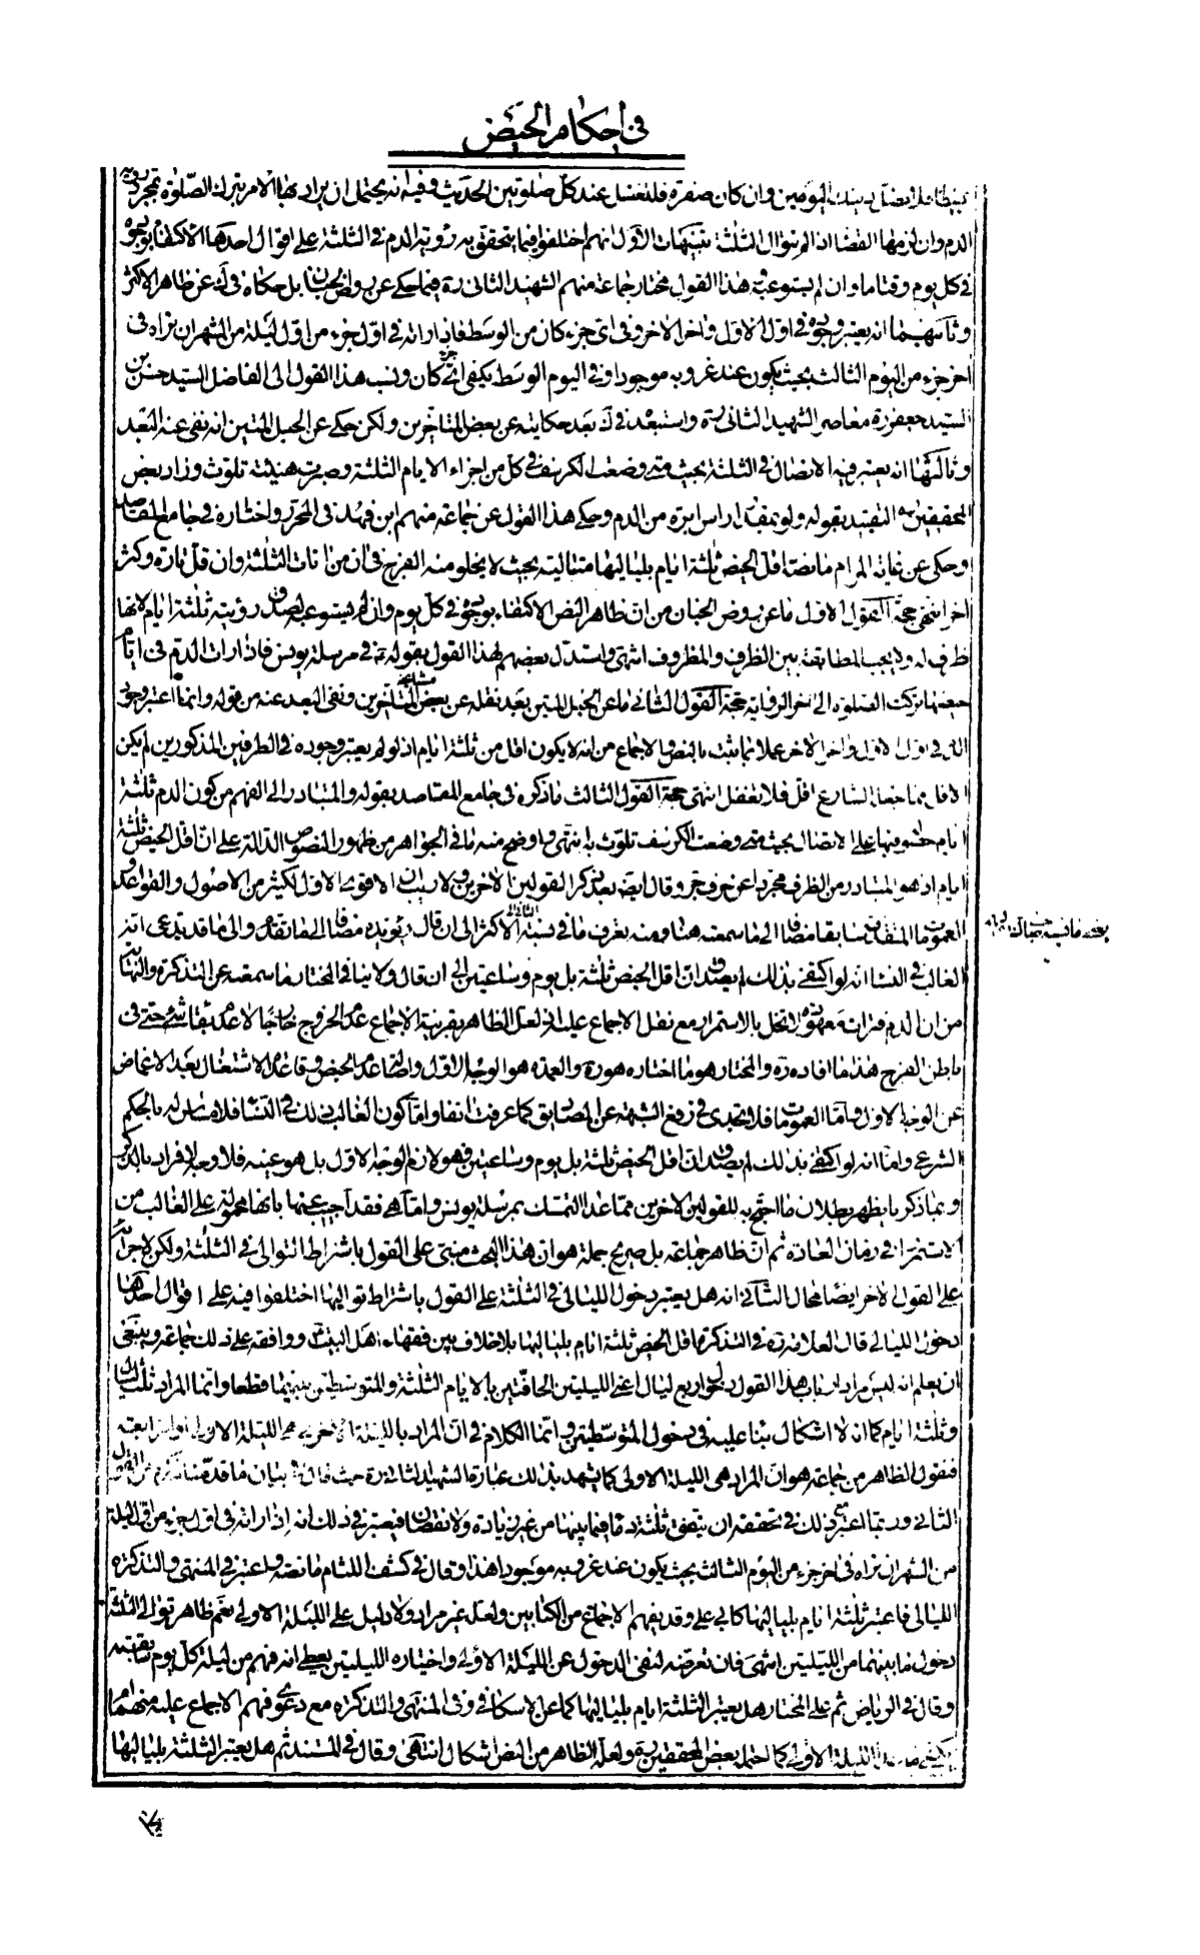 في احكام الحيض
عبيطا فلا تصل ذينك اليومين وان كان صفرة فلتغتسل عند كل صلوتين الحديث وفيه انه يحتمل ان يراد بهذا الامر بترك الصلوة بمجرد رؤية
الدم وان لزمها القضاء اذا لم يتوال الثلثة تنبيهات الاول انهم اختلفوا فيما يتحقق به رؤية الدم في الثلثة على اقوال احدها الاكتفاء بوجوده
في كل يوم وقتا ما وان لم يستوعبه وهذا القول مختار جماعة منهم الشهيد الثاني ره فيما حكى عن روض الجنان بل حكاه في ك عن ظاهر الاكثر
وثانيهما انه يعتبر وجوده في اول الاول واخر الاخر وفي اى جزء كان من الوسط فاذا راته في اول جزء من اول ليلة من الشهر ان تراه في
اخر جزء من اليوم الثالث بحيث يكون عند غروبه موجودا وفي اليوم الوسط يكفي اى جزء كان ونسب هذا القول الى الفاضل السيد حسن بن
السيد جعفر ره معاصر الشهيد الثاني ره واستبعد في ك بعد حكايته عن بعض المتاخرين ولكن حكى عن الحبل المتين انه نفى عنه البعد
وثالثها انه يعتبر فيه الاتصال في الثلثة بحيث متى وضعت الكرسف في كل من اجزاء الايام الثلثة وصبرت هنيئة تلوث وزاد بعض
المحققين ره التقييد بقوله ولو بمقدار راس ابرة من الدم وحكى هذا القول عن جماعة منهم ابن فهد في المحرر واختاره في جامع المقاصد
وحكى عن غاية المرام ما نصه اقل الحيض ثلثة ايام بلياليها متتالية بحيث لا يخلو منه الفرج في ان من انات الثلثة وان قل تارة وكثر
اخرا انتهى حجة القول الاول ما عن روض الجنان من ان ظاهر النص الاكتفاء بوجوده في كل يوم وان لم يستوعبه لصدق رؤيته ثلثة ايام لانها
ظرف له ولا يجب المطابقة بين الظرف والمظروف انتهى واستدل بعضهم لهذا القول بقوله ع في مرسلة يونس فاذا رات الدم في ايام
حيضها تركت الصلوة الى اخر الرواية حجة القول الثاني ما عن الحبل المتين بعد نقله عن بعض مشايخنا المتاخرين ونفى البعد عنه من قوله وانما اعتبر وجود
الدم في اول الاول واخر الاخر عملا بما ثبت بالنص والاجماع من انه لا يكون اقل من ثلثة ايام اذ لو لم يعتبر وجوده في الطرفين المذكورين لم يكن
الاقل مما جعله الشارع اقل فلا تغفل انتهى حجة القول الثالث ما ذكره في جامع المقاصد بقوله والمتبادر الى الفهم من كون الدم ثلثة
ايام حصوله فيها على الاتصال بحيث متى وضعت الكرسف تلوث به انتهى واوضح منه ما في الجواهر من ظهور النصوص الدالة على ان اقل الحيض ثلثة
ايام اذ هو المتبادر من الظرف مجردا عن حرف جر وقال ايضا بعد ذكر القولين الاخرين ولا ريب ان الاقوى الاول لكثير من الاصول والقواعد و
العمومات المتقدمة سابقا مضافا الى ما سمعته هنا ومنه يعرف ما في نسبة الثاني الى الاكثر الى ان قال ويؤيده مضافا الى ما تقدم والى ما قد يدعى انه
الغالب في النساء انه لو اكتفى بذلك لم يصدق ان اقل الحيض ثلثة بل يوم وساعتين الى ان قال ولا ينافي المختار ما سمعته عن التذكرة والنهاية
من ان الدم فترات معهودة لا تخل بالاستمرار مع نقل الاجماع عليه اذ لعل الظاهر بقرينة الاجماع عدم الخروج خارجا لا عدم بقاء شيء حتى في
باطن الفرج هذا ما افاده ره والمختار هو ما اختاره هو ره والعمدة هو الوجه الاول واما قاعدة الحيض وقاعدة الاشتغال بعد الاغماض
عن الوجه الاول واما العمومات فلا تجدى في رفع الشبهة عن المصاديق كما عرفت انفا واما كون الغالب ذلك في النساء فلا مساس له بالحكم
الشرعي واما انه لو اكتفى بذلك لم يصدق ان اقل الحيض ثلثة بل يوم وساعتين فهو لازم الوجه الاول بل هو عينه فلا وجه لافراده بالذكر
وبما ذكر يا يظهر بطلان ما احتج به للقولين الاخرين مما عدا التمسك بمرسلة يونس واما هي فقد اجيب عنها بانها محمولة على الغالب من
الاستمرار في زمان العادة ثم ان ظاهر جماعة بل صريح جملة هو ان هذا البحث مبنى على القول باشتراط التوالى في الثلثة ولكن لاجرائه
على القول الاخر ايضا مجال الثاني انه هل يعتبر دخول الليالي في الثلثة على القول باشتراط تواليها اختلفوا فيه على اقوال احدها
دخول الليالي قال العلامة ره في التذكرة اقل الحيض ثلثة ايام بلياليها بلا خلاف بين فقهاء اهل البيت ع ووافقه على ذلك جماعة وينبغي
ان يعلم انه ليس مراد ارباب هذا القول دخول اربع ليال اعنى الليلتين الحافتين بالايام الثلثة والمتوسطتين بينهما قطعا وانما المراد ثلث ليال
وثلثة ايام كما انه لا اشكال بناء عليه في دخول المتوسطتين وانما الكلام في ان المراد بالليلة الاخرى هي الليلة الاولى او الرابعة
فنقول الظاهر من جماعة هو ان المراد هي الليلة الاولى كما يشهد بذلك عبارة الشهيد الثاني ره حيث قال في بيان ما قدمنا ذكره من القول
الثاني وربما اعتبر مع ذلك في تحققه ان يتفق ثلثة دقاقها بينها من غير زيادة ولا نقصان فيعتبر في ذلك انه اذا راته في اول جزء من اول ليلة
من الشهر ان تراه في اخر جزء من اليوم الثالث بحيث يكون عند غروبه موجودا هذا وقال في كشف اللثام ما نصه واعتبر في المنتهى والتذكرة
الليالي فاعتبر ثلثة ايام بلياليها كابي علي وقد يفهم الاجماع من الكتابين ولعله غير مراد ولا دليل على الليلة الاولى نعم ظاهر توالى الثلثة
دخول ما بينهما من الليلتين انتهى فان تعرضه لنفي الدخول عن الليلة الاولى واختياره الليلتين يعطى انه فهم من ليلة كل يوم سابقته
وقال في الرياض ثم على المختار هل يعتبر الثلثة ايام بلياليها كما عن الاسكافي وفي المنتهى والتذكرة مع دعوى فهم الاجماع عليه منهما ام
يكفي ما عدا الليلة الاولى كما احتمله بعض المحققين ره ولعله الظاهر من النص اشكال انتهى وقال في المستند ثم هل يعتبر الثلثة بلياليها